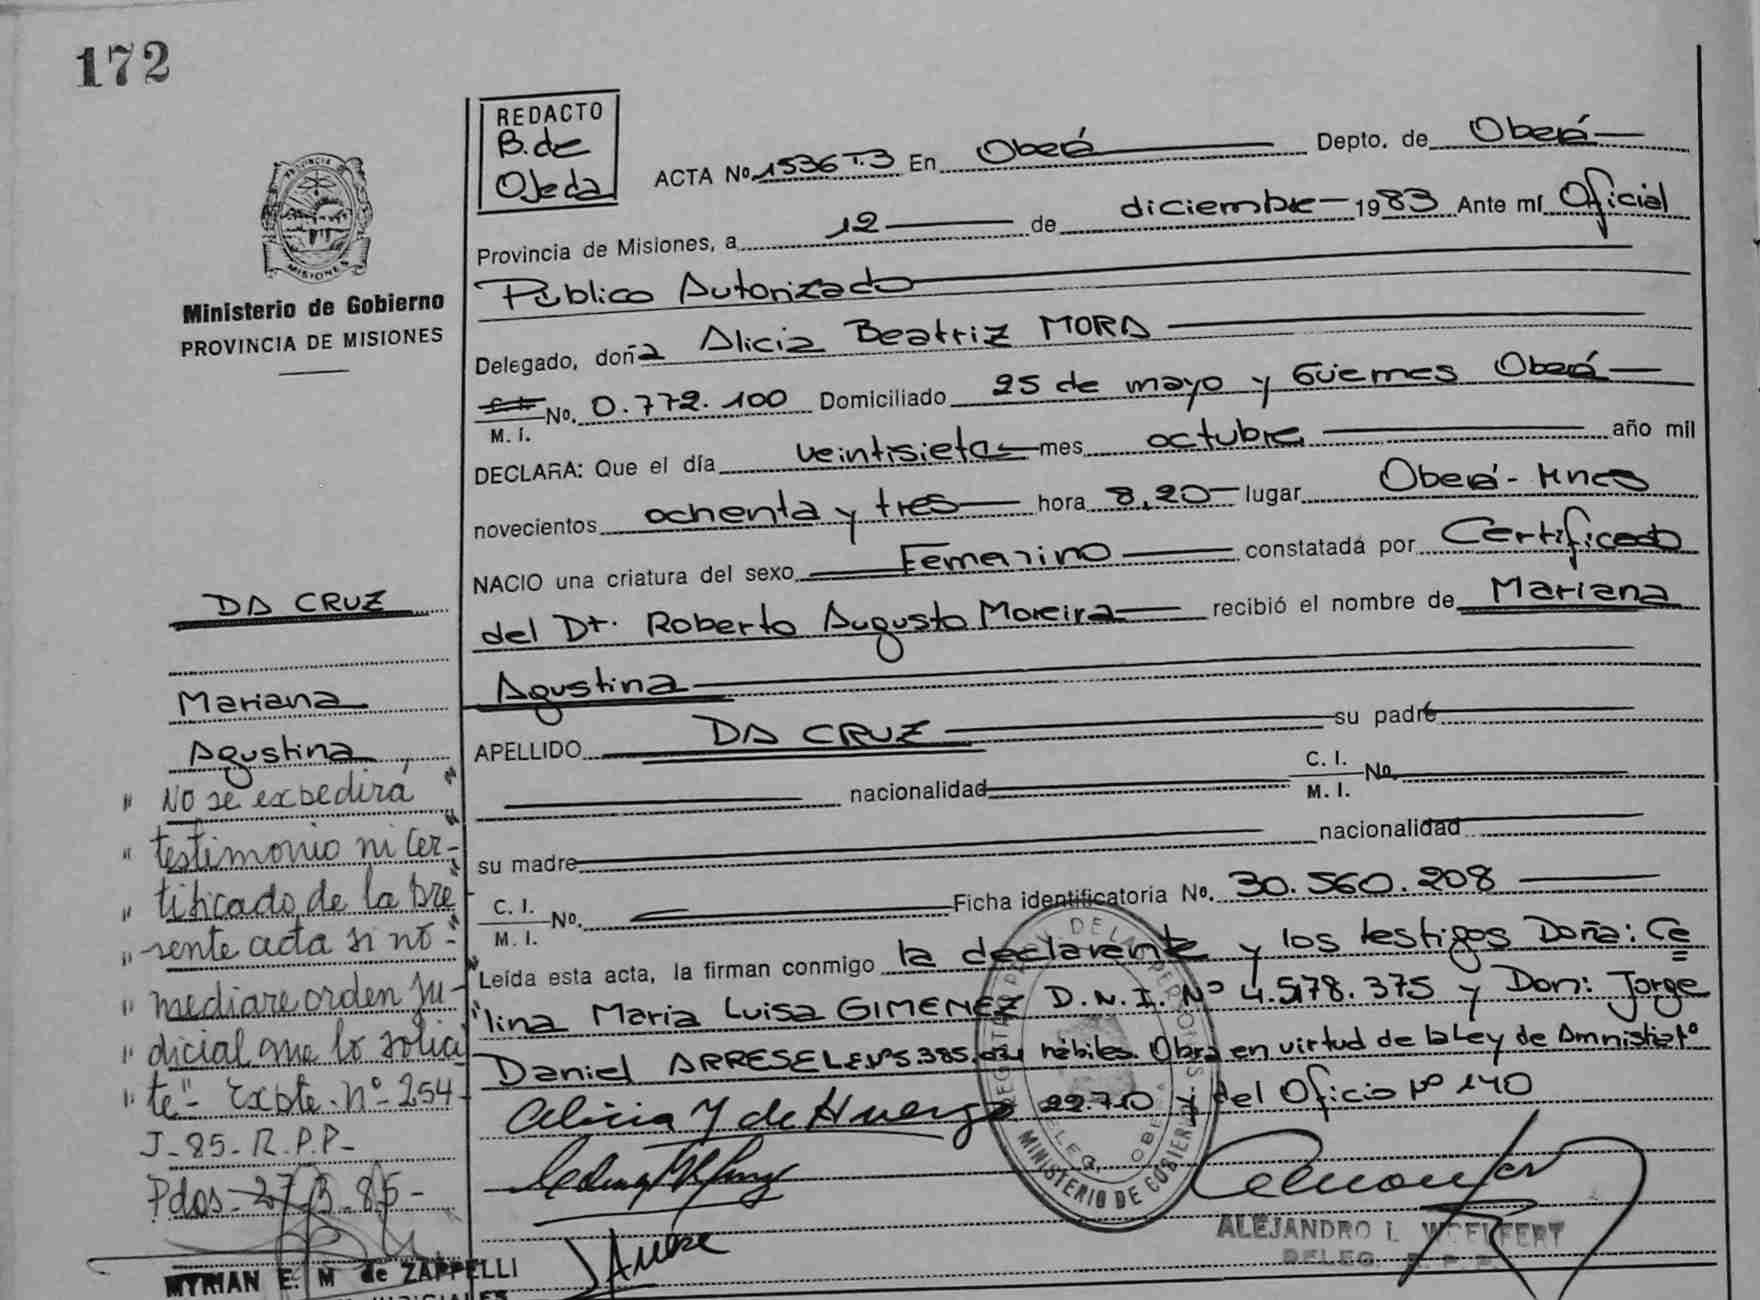 172
REDACTO
B. de
Ojeda
ACTA Nº 1536 T.3 En Oberá Depto. de Oberá
Provincia de Misiones, a 12 de diciembre 1983 Ante mí Oficial
Público Autorizado
Delegado, doña Alicia Beatriz MORA
M. I. No. 0.772.100 Domiciliado 25 de mayo y Güemes Oberá
DECLARA: Que el día veintisiete mes octubre año mil
novecientos ochenta y tres hora 8,20 lugar Oberá - Mnes
NACIO una criatura del sexo Femenino constatada por Certificado
del Dr. Roberto Augusto Moreira recibió el nombre de Mariana
Agustina
APELLIDO DA CRUZ su padre
nacionalidad C. I. M. I. No.
su madre nacionalidad
C. I. M. I. No. Ficha identificatoria No. 30.560.208
Leída esta acta, la firman conmigo la declarante y los testigos Doña: Ce
lina Maria Luisa GIMENEZ D.N.I. Nº 4.578.375 y Don: Jorge
Daniel hábiles. Obra en virtud de la Ley de Amnistia Nº
22.710 y del Oficio Nº 140
PROVINCIA
MISIONES
Ministerio de Gobierno
PROVINCIA DE MISIONES
DA CRUZ
Mariana
Agustina
" No se expedirá "
" testimonio ni cer- "
" tificado de la pre "
" sente acta si no "
" mediare orden ju- "
" dicial que lo solici
" te" - Expte. nº 254
J - 85 - R.P.P. -
Pdos - 27/3 - 85 -
MYRIAN E. M de ZAPPELLI
MINISTERIO DE GOBIERNO
ALEJANDRO L. WOELFERT
DELEG. R. P. P.